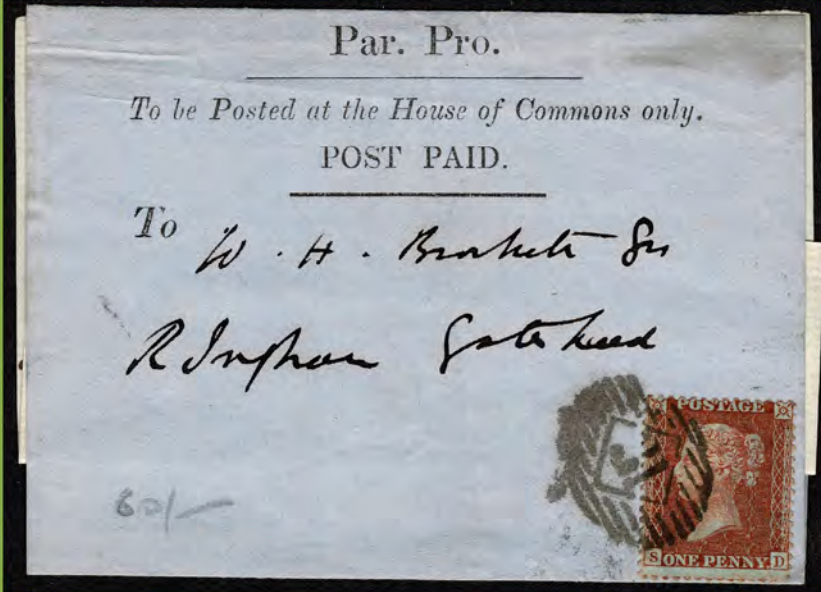 Par. Pro.
To be Posted at the House of Commons only.
POST PAID.
To W. H. Brockett Esq
R Ingham Gateshead
60/-
POSTAGE
S ONE PENNY D